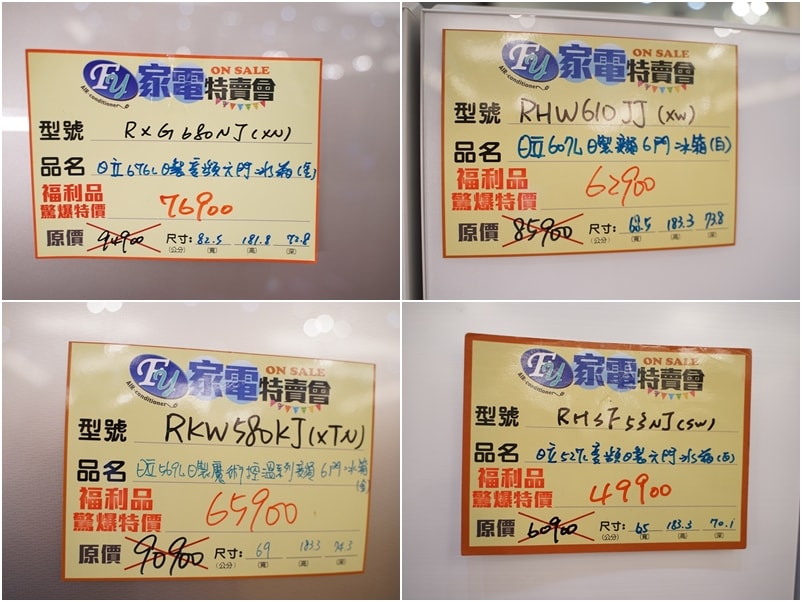 ON SALE
FY 家電特賣會
AIR-conditioner
型號 RXG680NJ(XN)
品名 日立676L日製變頻六門冰箱(金)
福利品
驚爆特價 76900
原價 94900 尺寸: 82.5 181.8 72.8
(公分) (寬) (高) (深)
ON SALE
FY 家電特賣會
AIR-conditioner
型號 RHW610JJ(XW)
品名 日立607L日製變頻6門冰箱(白)
福利品
驚爆特價 62900
原價 85900 尺寸: 68.5 183.3 73.8
(公分) (寬) (高) (深)
ON SALE
FY 家電特賣會
AIR-conditioner
型號 RKW580KJ(XTN)
品名 日立569L日製魔術控溫系列變頻6門冰箱
(金)
福利品
驚爆特價 65900
原價 90900 尺寸: 69 183.3 74.3
(公分) (寬) (高) (深)
ON SALE
FY 家電特賣會
AIR-conditioner
型號 RHSF53NJ(SW)
品名 日立527L變頻日製六門冰箱(白)
福利品
驚爆特價 49900
原價 60900 尺寸: 65 183.3 70.1
(公分) (寬) (高) (深)